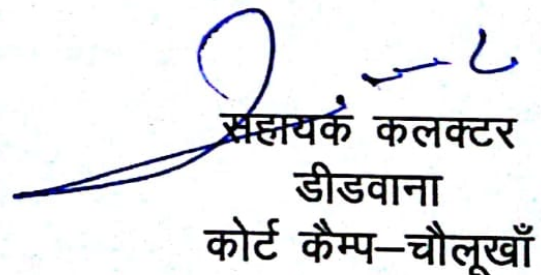 सहायक कलक्टर
डीडवाना
कोर्ट कैम्प–चौलूखाँ